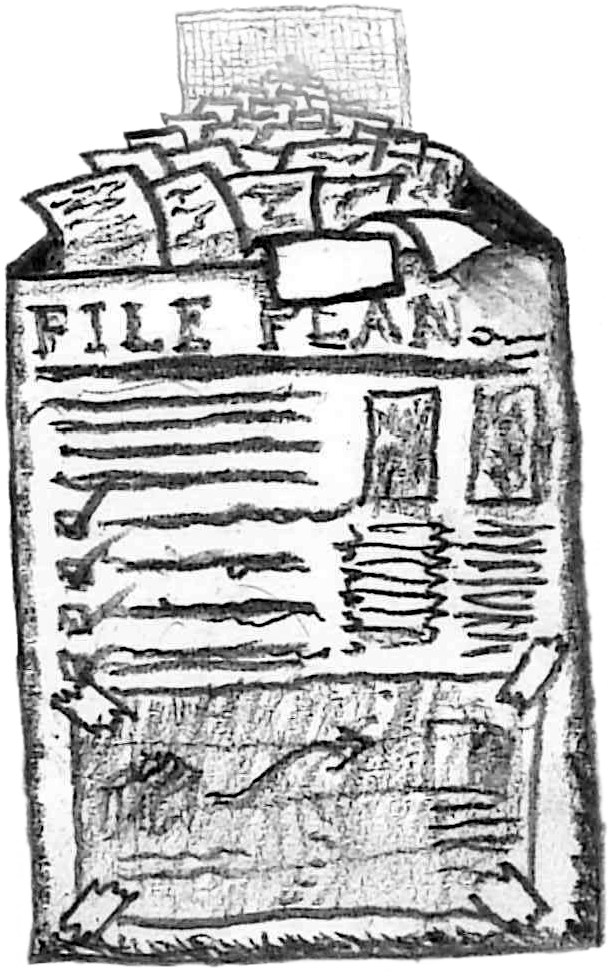 FILE PLAN